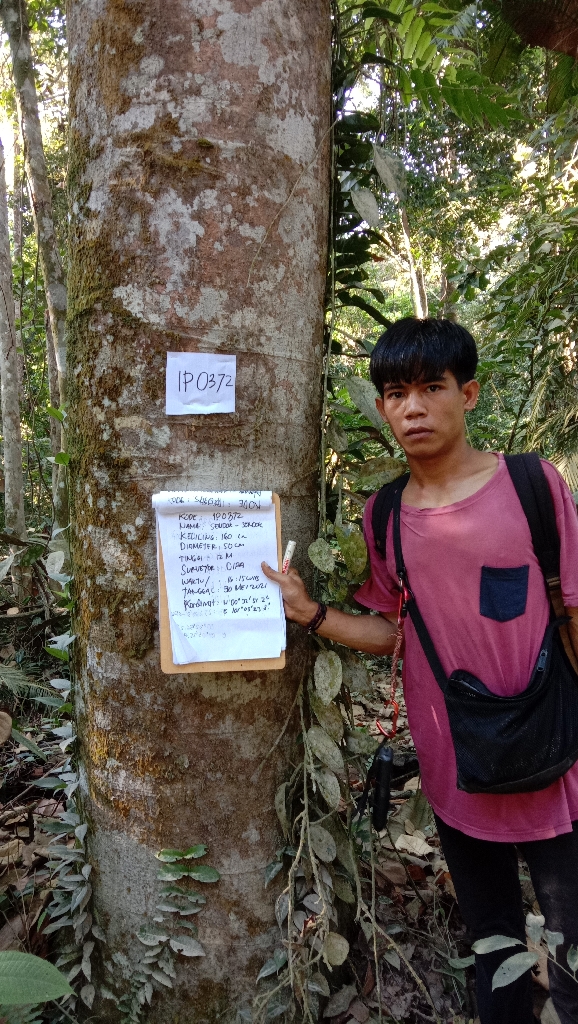 IP0372
KODE : IP0372
NAMA : SENDOK - SENDOK
KELILING : 160 cm
DIAMETER : 50 cm
TINGGI : 12 M
SURVEYOR : DIRA
WAKTU/ : 16:15 WIB
TANGGAL : 30 MEI 2021
KORDINAT :